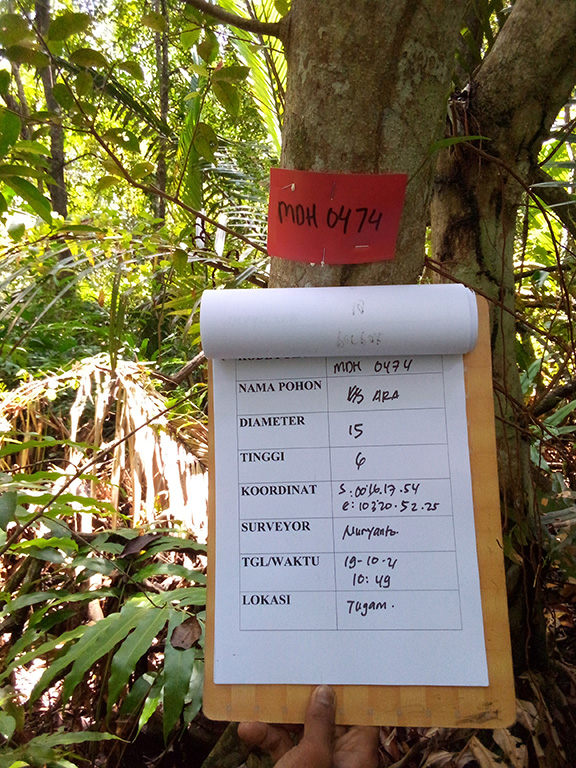 MDH 0474
MDH 0474
NAMA POHON ARA
DIAMETER 15
TINGGI 6
KOORDINAT S:00'16.17.54
e:103'20.52.25
SURVEYOR Nuryanto.
TGL/WAKTU 19-10-21
10:49
LOKASI Tugam.